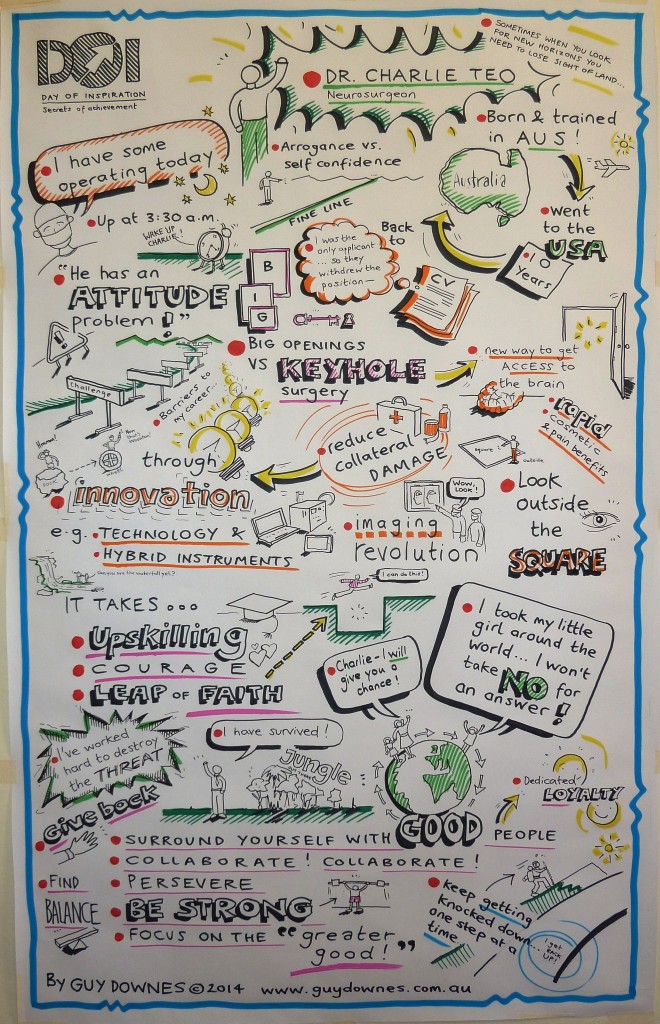 SOMETIMES WHEN YOU LOOK
FOR NEW HORIZONS YOU
NEED TO LOSE SIGHT OF LAND...
DOI
DAY OF INSPIRATION
Secrets of achievement
DR. CHARLIE TEO
Neurosurgeon
Born & trained
in AUS!
I have some
operating today
Arrogance vs.
self confidence
FINE LINE
Australia
Went
to the
USA
10
Years
Up at 3:30 a.m.
WAKE UP
CHARLIE!
I was the
only applicant
... so they
withdrew the
position—
Back
to
CV
"He has an
ATTITUDE
problem!"
B
I
G
BIG OPENINGS
VS KEYHOLE
surgery
new way to get
ACCESS to
the brain
Challenge
Barriers to
my career...
rapid
cosmetic
& pain benefits
reduce
collateral
DAMAGE
square
outside
through
innovation
e.g. TECHNOLOGY &
HYBRID INSTRUMENTS
WOW,
LOOK!
imaging
revolution
Look
outside
the
SQUARE
I can do this!
IT TAKES...
UPSKILLING
COURAGE
LEAP OF FAITH
Charlie - I will
give you a
chance!
I took my little
girl around the
world... I won't
take NO for
an answer!
I've worked
hard to destroy
the THREAT
I have survived!
Jungle
Dedicated
LOYALTY
GIVE BACK
SURROUND YOURSELF WITH GOOD PEOPLE
COLLABORATE! COLLABORATE!
FIND
BALANCE
PERSEVERE
BE STRONG
FOCUS ON THE "greater
good!"
keep getting
knocked down...
one step at a
time...
I get
BACK
UP!
BY GUY DOWNES © 2014 www.guydownes.com.au